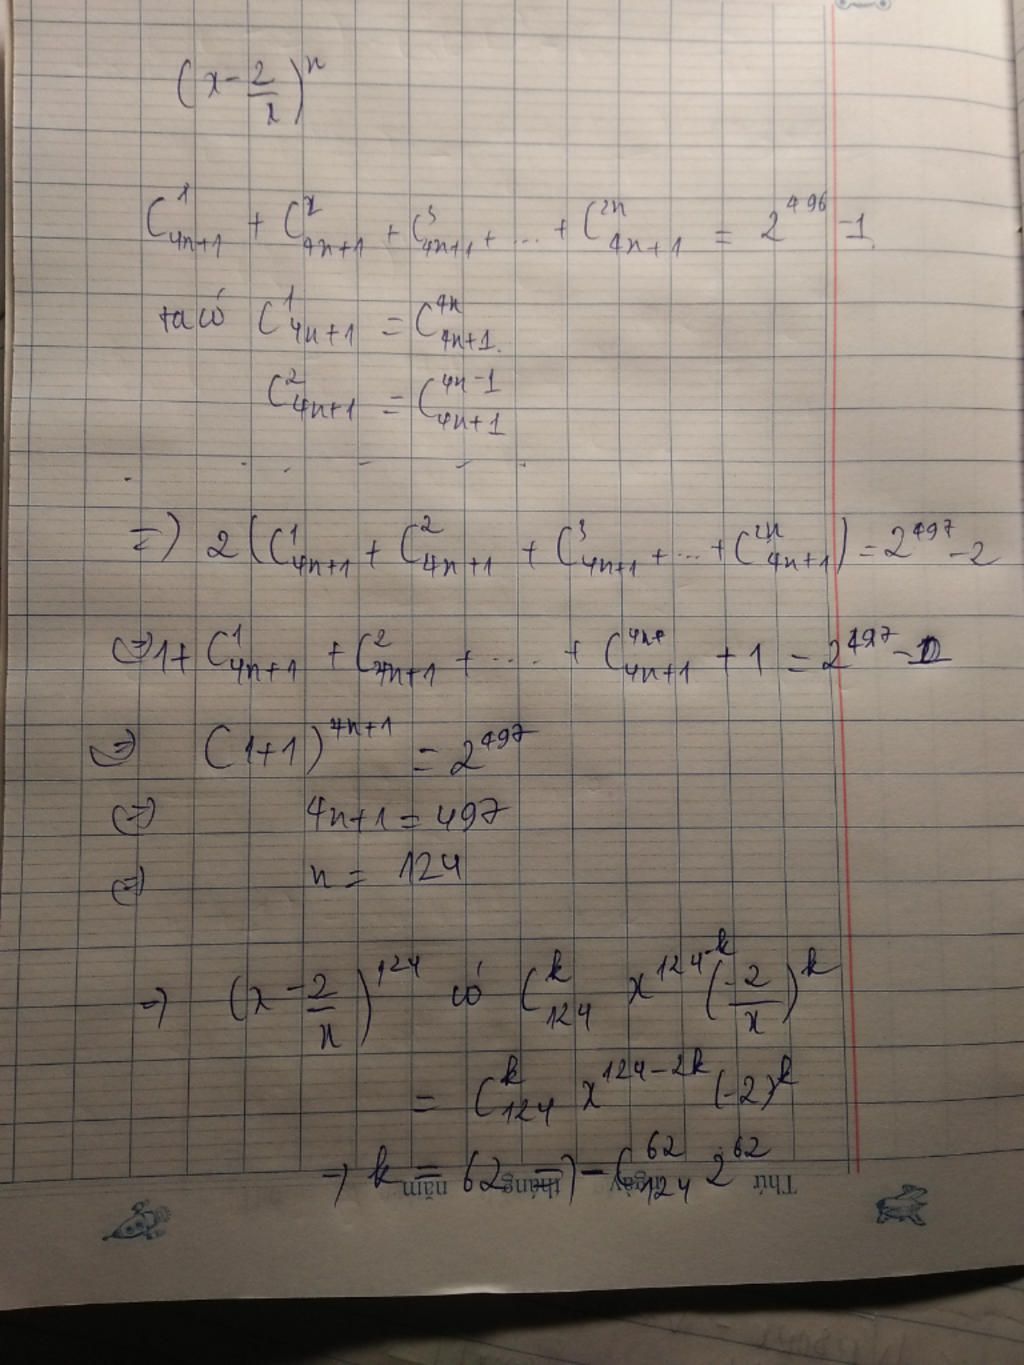 (x - 2/x)^n
C^1_{4n+1} + C^2_{4n+1} + C^3_{4n+1} + ... + C^{2n}_{4n+1} = 2^{496} - 1.
ta có C^1_{4n+1} = C^{4n}_{4n+1}.
C^2_{4n+1} = C^{4n-1}_{4n+1}
=> 2(C^1_{4n+1} + C^2_{4n+1} + C^3_{4n+1} + ... + C^{2n}_{4n+1}) = 2^{497} - 2
<=> 1 + C^1_{4n+1} + C^2_{4n+1} + .... + C^{4n}_{4n+1} + 1 = 2^{497}
<=> (1+1)^{4n+1} = 2^{497}
<=> 4n+1 = 497
<=> n = 124
=> (x - 2/x)^{124} có C^k_{124} x^{124-k} (-2/x)^k
= C^k_{124} x^{124-2k} (-2)^k
→ k = 62 => - C^{62}_{124} 2^{62}
Thứ ngày tháng năm